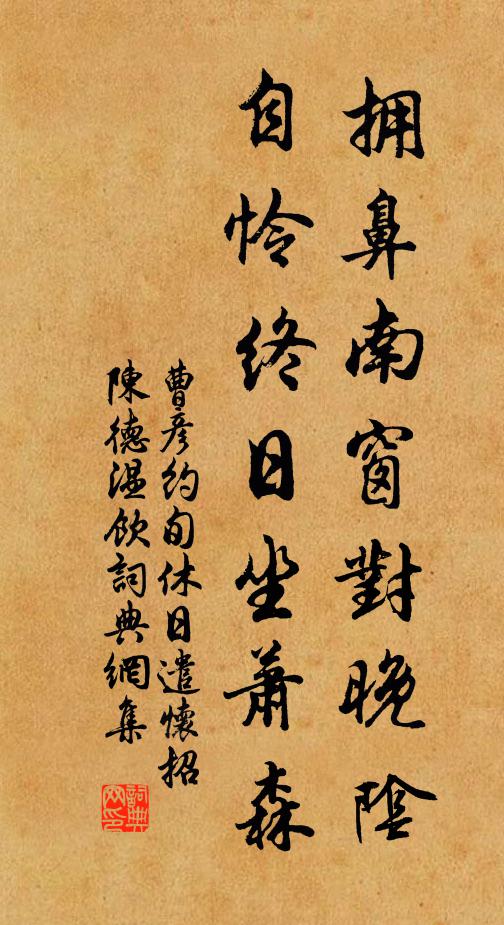 拥鼻南窗對晚陰
自怜終日坐蕭森
曹彦約旬休日遣懷招
陳德温飲詞典網集
詞典
网印